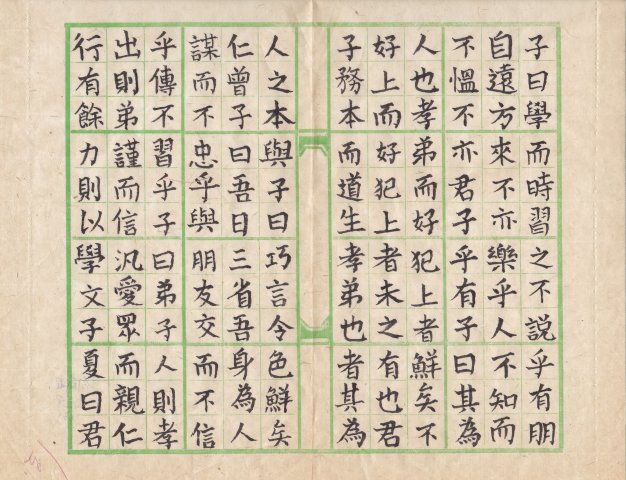 子曰學而時習之不說乎有朋
自遠方來不亦樂乎人不知而
不慍不亦君子乎有子曰其為
人也孝弟而好犯上者鮮矣不
好上而好犯上者未之有也君
子務本而道生孝弟也者其為
人之本與子曰巧言令色鮮矣
仁曾子曰吾日三省吾身為人
謀而不忠乎與朋友交而不信
乎傳不習乎子曰弟子人則孝
出則弟謹而信汎愛眾而親仁
行有餘力則以學文子夏曰君